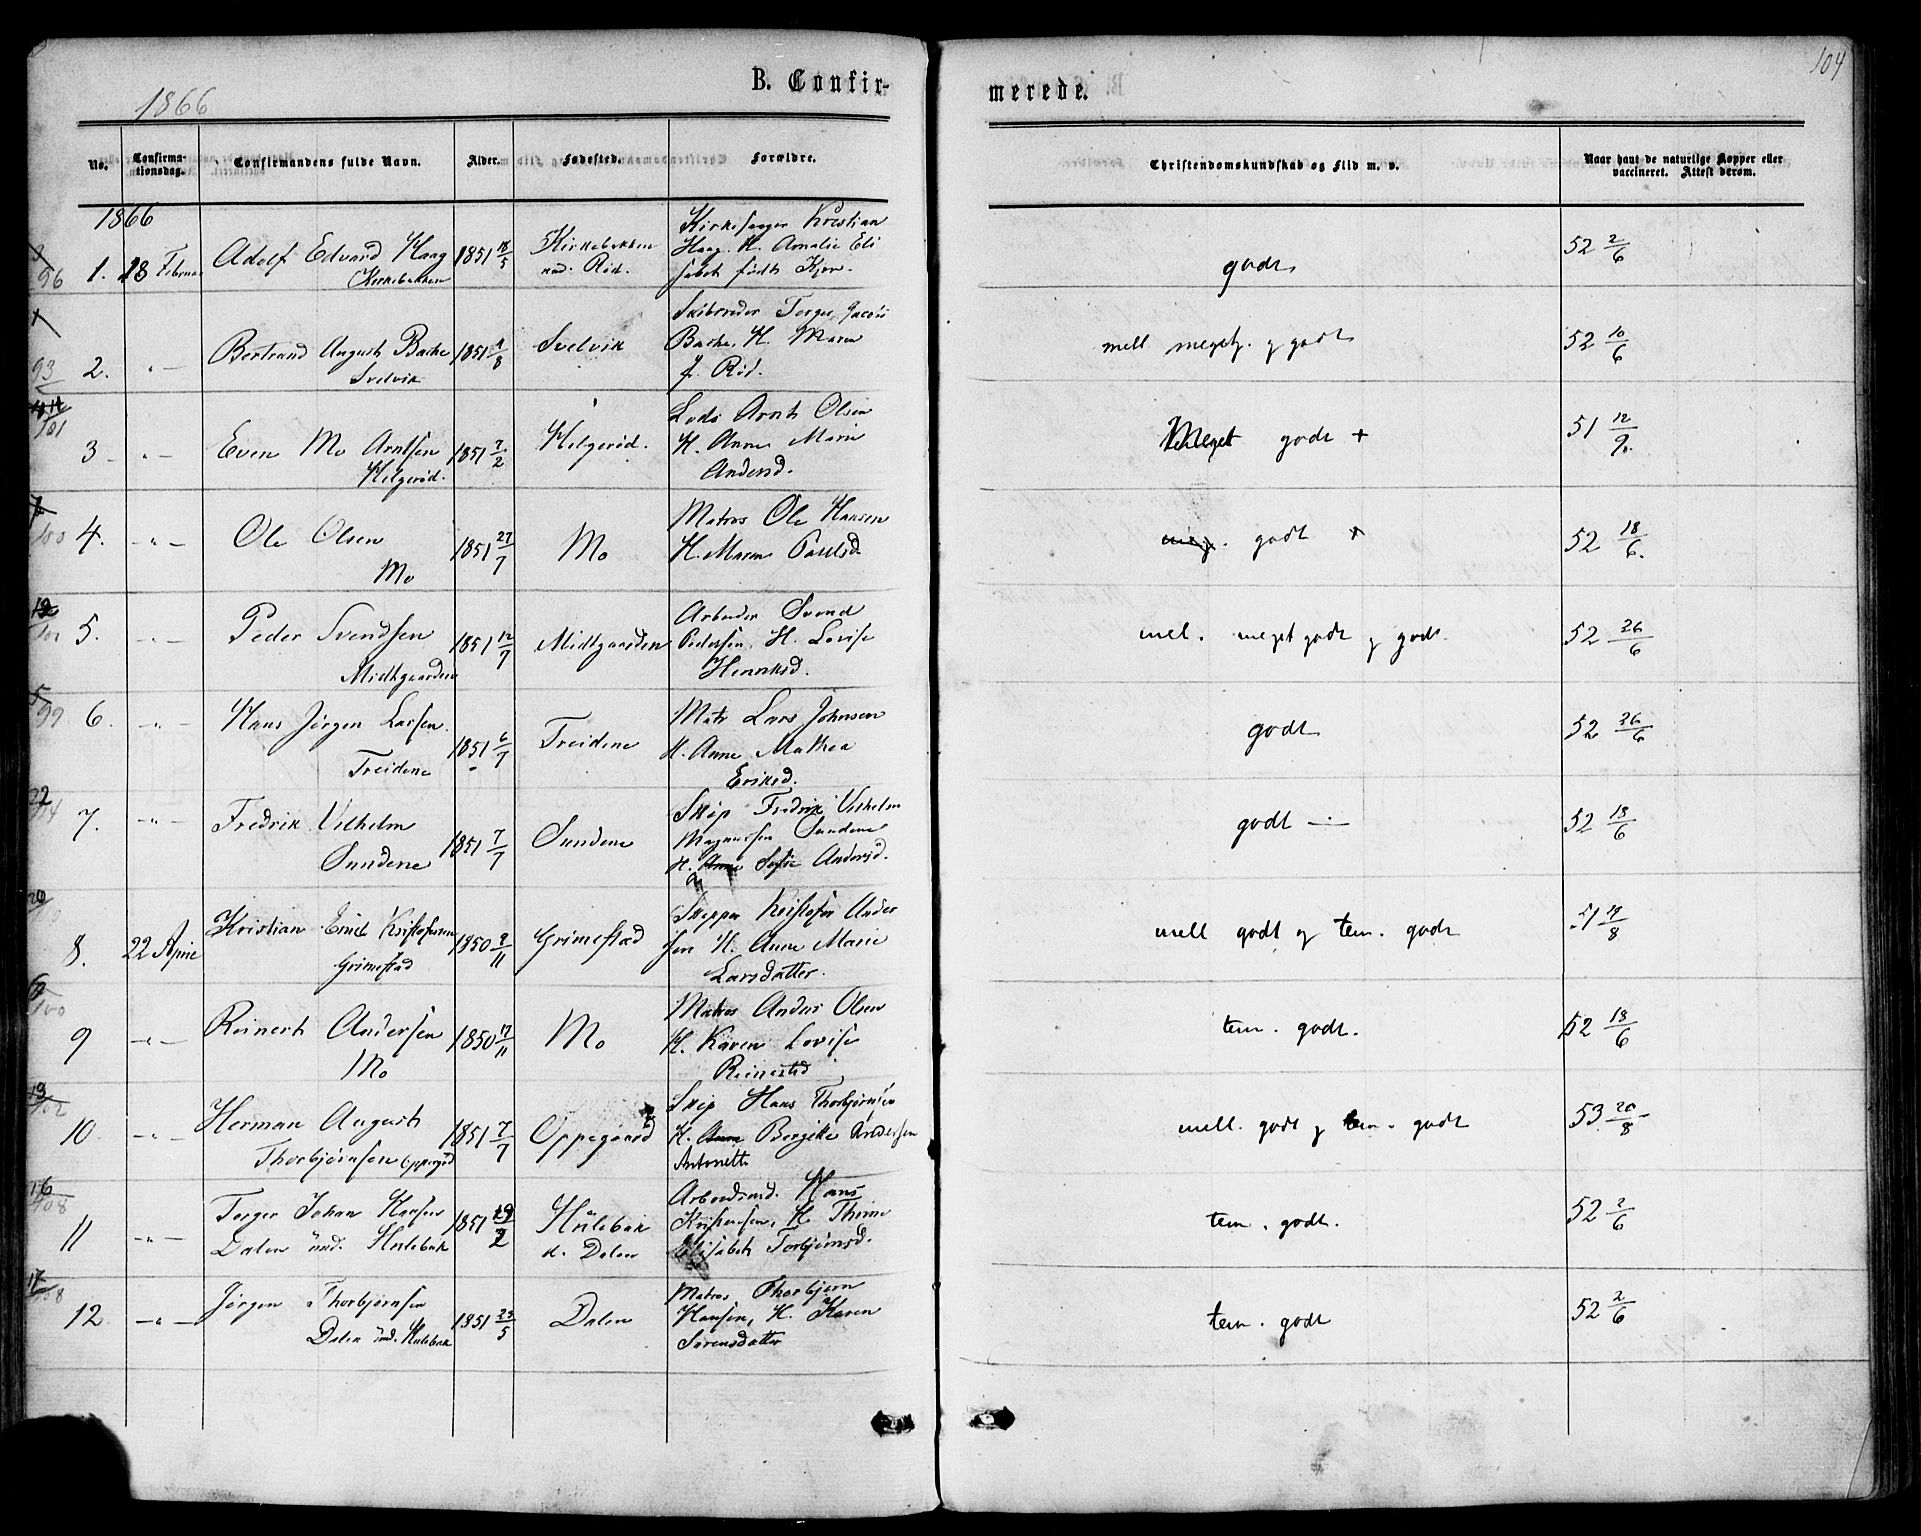 104
1866
B. Confir-
merede.
No.
Confirma-
tionsdag.
Confirmandens fulde Navn.
Alder.
Fødested.
Forældre.
Christendomskundskab og Flid m. v.
Naar havt de naturlige Kopper eller
vaccineret. Attest derom.
1866
1. 18 Februar
Adolf Edvard Haag
Kirkebakken
1851 18/5
Kirkebakken
und. Rød.
Kirkesanger Kristian
Haag, H. Amalie Eli
sabet født
godt
52 2/6
2. -"-
Bertrand August Bache
Svelvik
1851 1/8
Svelvik
Skibsreder Torger Jacob
Bache, H. Maren
f. Rød.
mell meget g. og godt
52 10/6
3 -"-
Even Mo Arntsen
Helgerød.
1851 7/2
Helgerød.
Lods Arnt Olsen
H. Anne Marie
Andersd.
Meget godt +
51 12/9.
4. -"-
Ole Olsen
Mo
1851 27/7
Mo
Matros Ole Hansen
H. Maren Paulsd.
meg. godt +
52 18/6.
5. -"-
Peder Svendsen
Midtgaarden
1851 12/7
Midtgaarden
Arbeider Svend
Pedersen, H. Lovise
Henriksd.
mel. meget godt og godt.
52 26/6
6. -"-
Hans Jørgen Larsen
Treidene
1851 6/7
Treidene
Matr Lars Johnsen
H. Anne Mathea
Eriksd.
godt
52 26/6
7. -"-
Fredrik Vilhelm
Sundene
1851 7/7
Sundene
Skip Fredrik Vilhelm
Magnussen Sundene
H. Anne Sofie Andersd.
godt
52 18/6
8. 22 April
Kristian Emil Kristofersen
Grimestad
1850 9/11
Grimestad
Skipper Kristofer Ander
sen H. Anne Marie
Larsdatter.
mell godt og tem. godt
51 4/8
9 -"-
Reinert Andersen
Mo
1850 17/11
Mo
Matros Anders Olsen
H. Karen Lovise
Reinertsd
tem. godt.
52 18/6
10. -"-
Herman August
Thorbjørnsen Oppegård
1851 7/7
Oppegaard
Skip Hans Thorbjørnsen
H. Anne Bergitte Andersen
Antonette
mell. godt og tem. godt
53 20/8
11 -"-
Torger Johan Hansen
Dalen und. Hulebak
1851 19/2
Hulebak
Dalen
Arbeidsmd. Hans
Kristensen, H. Thrine
Elisabet Torbjørnsd.
tem. godt.
52 2/6
12. -"-
Jørgen Thorbjørnsen
Dalen und. Hulebak
1851 23/5
Dalen
Matros Thorbjørn
Hansen, H. Karen
Sørensdatter
tem. godt
52 2/6